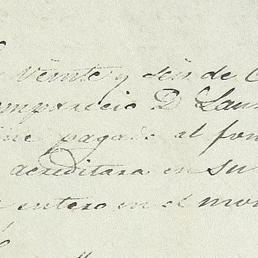 veinte y seis de
comparecio D. Lau
pagado al fon
acreditara en su
entero en el mo